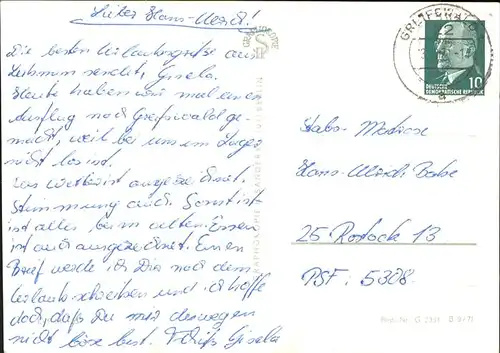 Lieber Hans-Werdi!
Die besten Urlaubsgrüße aus
Lubmin sendet, Gisela.
Heute haben wir mal einen
Ausflug nach Greifswald ge-
macht, weil bei uns im Lager
nicht los ist.
Das Wetter ist ausgezeichnet,
Stimmung auch. Sonst ist
ist alles beim alten. Essen
ist auch ausgezeichnet. Einen
Brief werde ich Dir nach dem
Urlaub schreiben und ich hoffe
doch, daß Du mir deswegen
nicht böse bist. Tschüß Gisela
GREIFSWALD
2
10
DEUTSCHE
DEMOKRATISCHE REPUBLIK
Stabs-Matrose
Hans-Werdi
25 Rostock 13
PSF: 5308